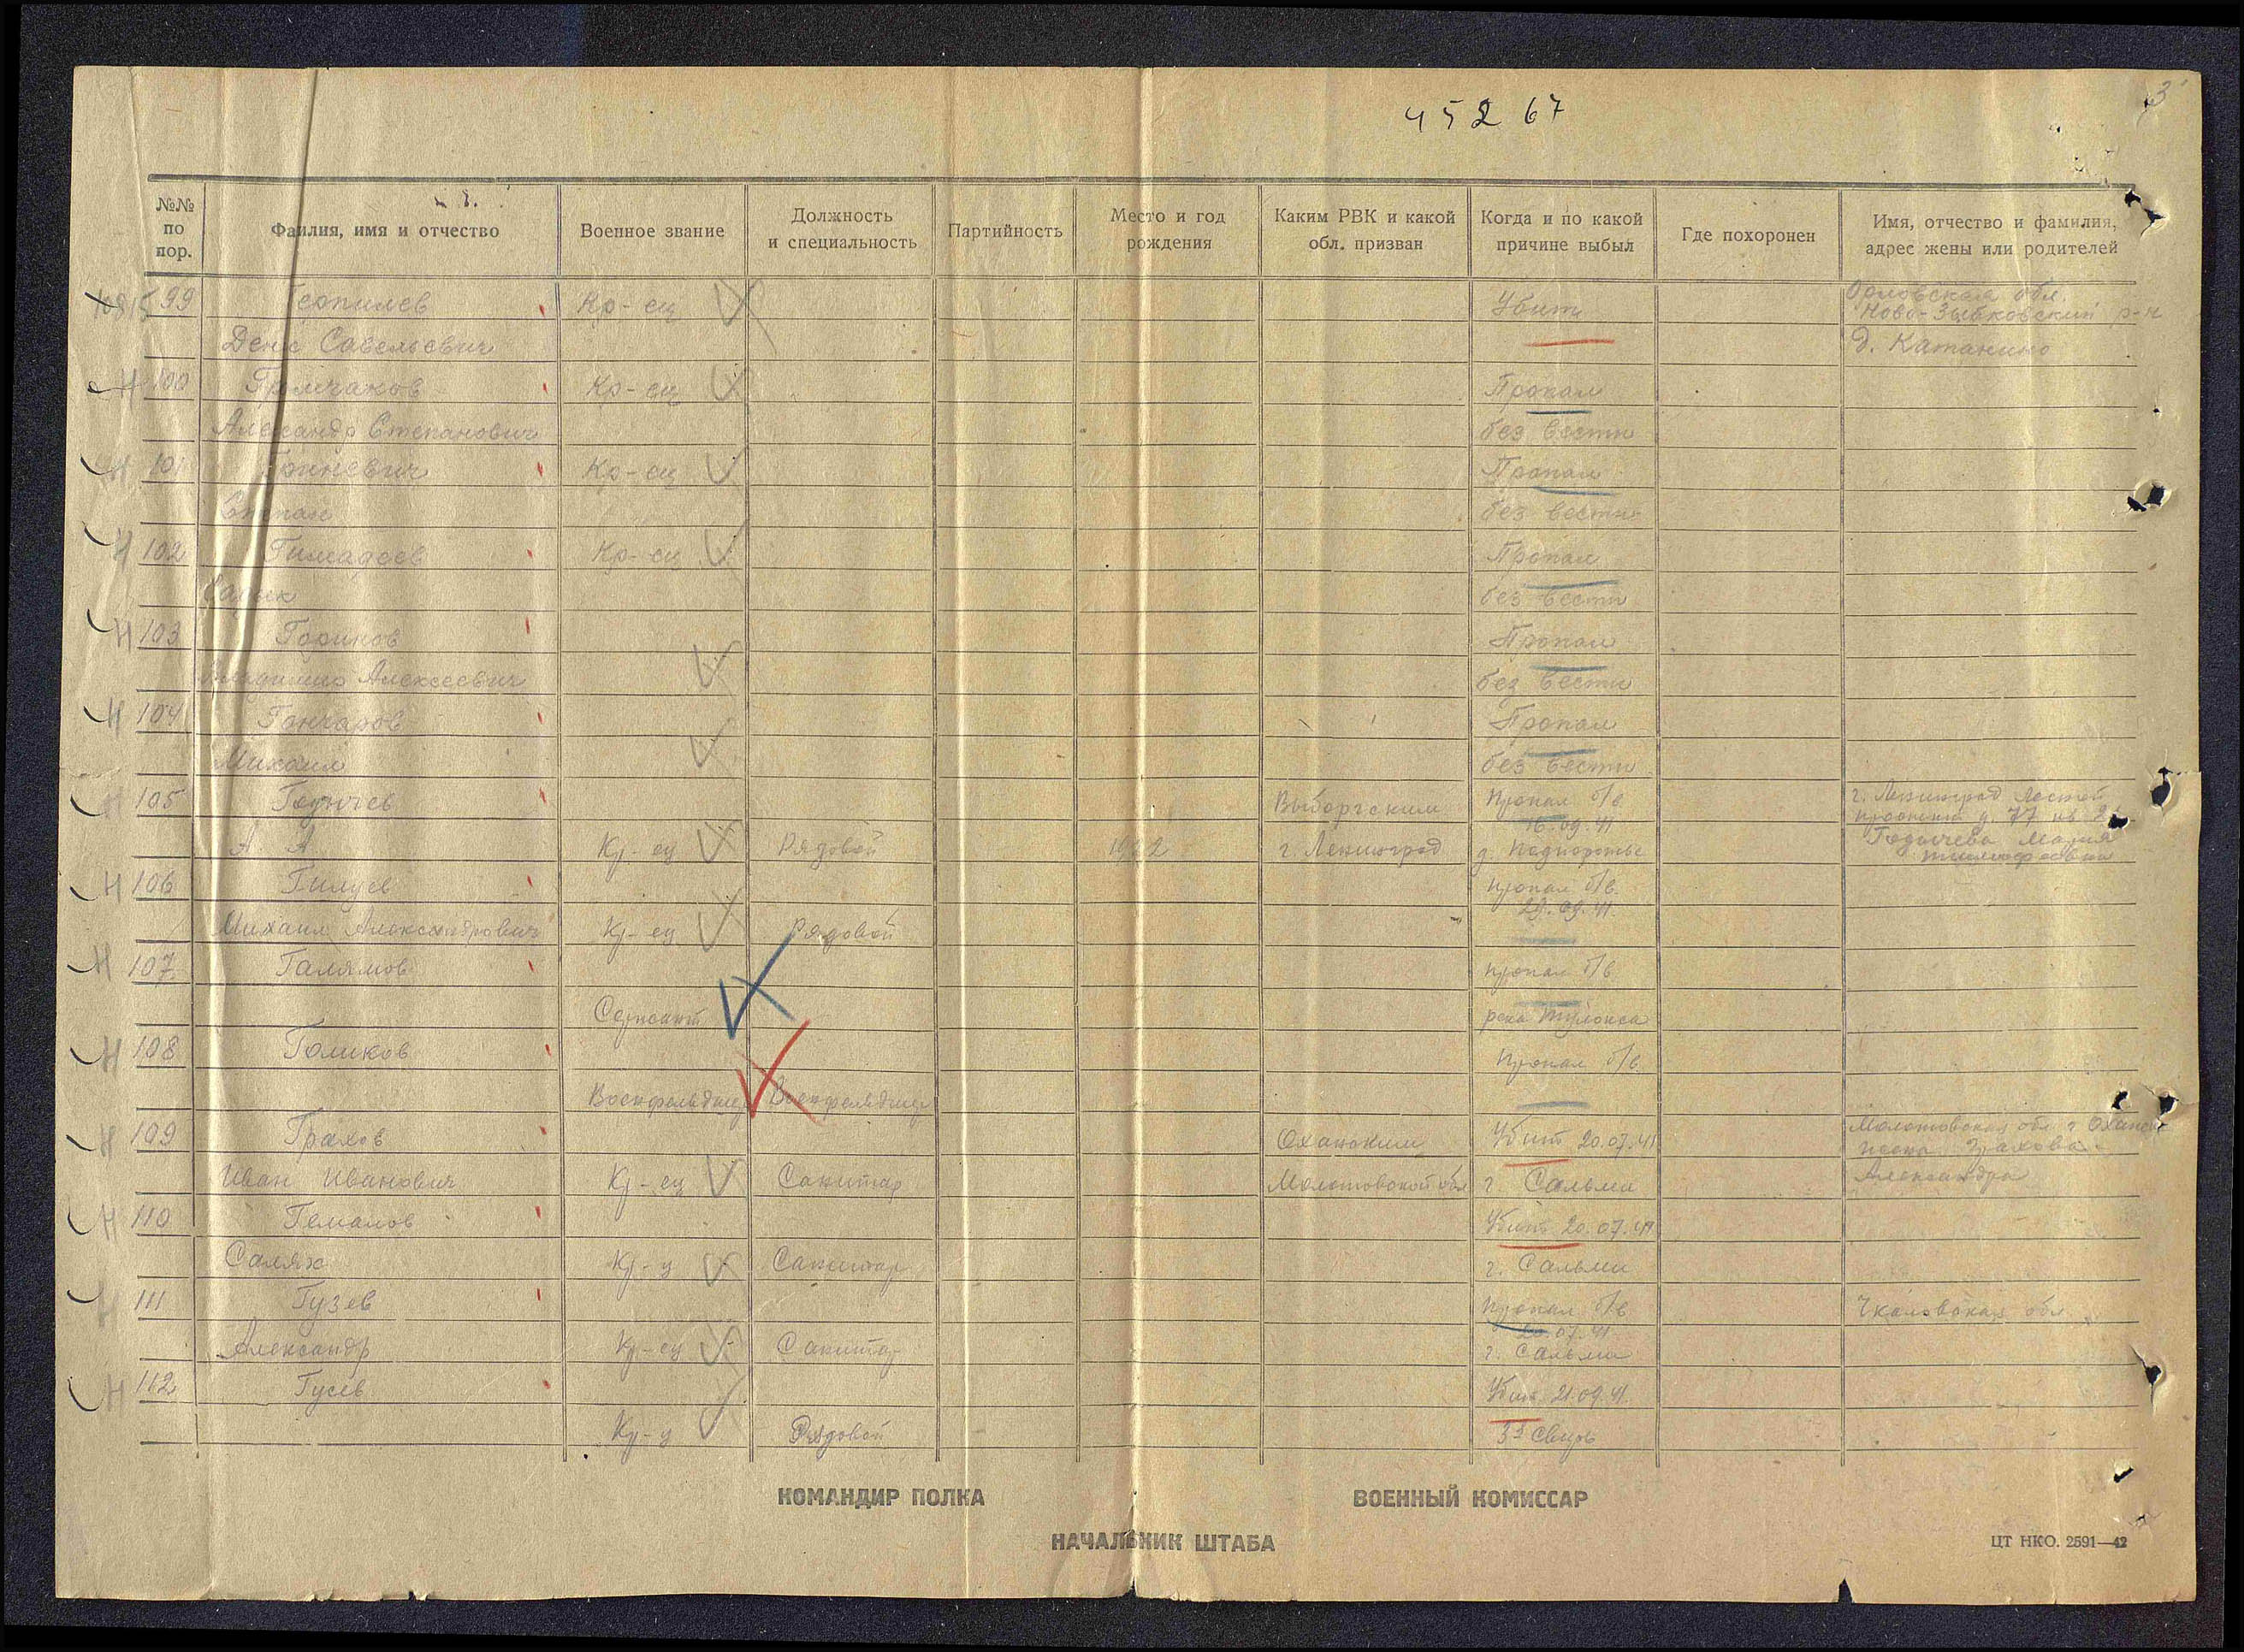 3
45267
№№ по пор.
Фамилия, имя и отчество
Военное звание
Должность и специальность
Партийность
Место и год рождения
Каким РВК и какой обл. призван
Когда и по какой причине выбыл
Где похоронен
Имя, отчество и фамилия, адрес жены или родителей
99 Кр-ец Убит Орловская обл.
Ново-Зыбковский р-н
Савельевич д. Катакино
100 Кр-ец Пропал
Александр Степанович без вести
101 Кр-ец Пропал
Степан без вести
102 Гимадеев Кр-ец Пропал
без вести
103 Горинов Пропал
Владимир Алексеевич без вести
104 Гончаров Пропал
Михаил без вести
105 Годычев Выборгским Пропал б/в г. Ленинград
16.09.41
А А Кр-ец Рядовой 1922 г. Ленинград д. Подпорожье Годычева Мария
106 Пропал б/в
29.09.41
Михаил Александрович Кр-ец Рядовой
107 Галямов Пропал б/в
Сержант река Тулокса
108 Голиков Пропал б/в
Военфельдшер Военфельдшер
109 Грахов Оханским Убит 20.07.41 Молотовская обл г Оханск
Грахова
Иван Иванович Кр-ец Санитар Молотовской обл г. Сальми Александра
110 Убит 20.07.41
Салях Кр-ц Санитар г. Сальми
111 Гузев Пропал б/в Чкаловская обл.
20.07.41
Александр Кр-ец Санитар г. Сальми
112 Гусев Убит 21.09.41.
Кр-ц Рядовой Свирь
КОМАНДИР ПОЛКА
ВОЕННЫЙ КОМИССАР
НАЧАЛЬНИК ШТАБА
ЦТ НКО. 2591—42